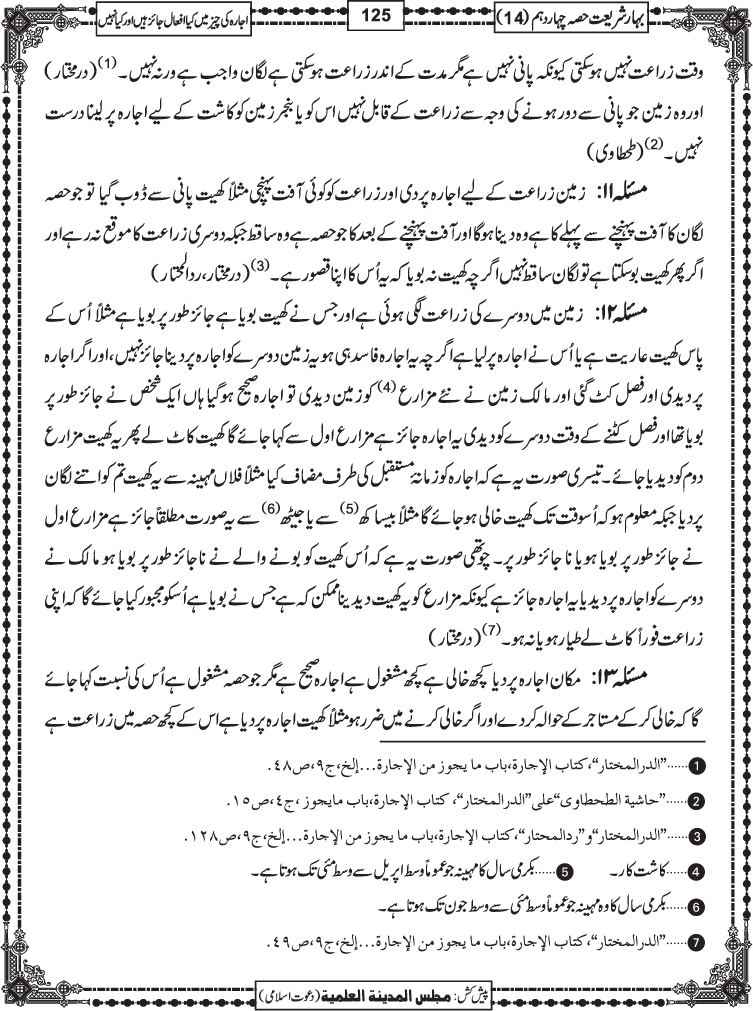 بہار شریعت حصہ چہاردہم (14)
125
اجارہ کی چیز میں کیا افعال جائز ہیں اور کیا نہیں
وقت زراعت نہیں ہوسکتی کیونکہ پانی نہیں ہے مگر مدت کے اندر زراعت ہوسکتی ہے لگان واجب ہے ورنہ نہیں۔(1) (درمختار)
اور وہ زمین جو پانی سے دور ہونے کی وجہ سے زراعت کے قابل نہیں اس کو یا بنجر زمین کو کاشت کے لیے اجارہ پر لینا درست
نہیں۔(2) (طحطاوی)
مسئلہ ۱۱: زمین زراعت کے لیے اجارہ پر دی اور زراعت کو کوئی آفت پہنچی مثلاً کھیت پانی سے ڈوب گیا تو جو حصہ
لگان کا آفت پہنچنے سے پہلے کا ہے وہ دینا ہوگا اور آفت پہنچنے کے بعد کا جو حصہ ہے وہ ساقط جبکہ دوسری زراعت کا موقع نہ رہے اور
اگر پھر کھیت بو سکتا ہے تو لگان ساقط نہیں اگرچہ کھیت نہ بویا کہ یہ اُس کا اپنا قصور ہے۔(3) (درمختار، ردالمحتار)
مسئلہ ۱۲: زمین میں دوسرے کی زراعت لگی ہوئی ہے اور جس نے کھیت بویا ہے جائز طور پر بویا ہے مثلاً اُس کے
پاس کھیت عاریت ہے یا اُس نے اجارہ پر لیا ہے اگرچہ یہ اجارہ فاسد ہی ہو یہ زمین دوسرے کو اجارہ پر دینا جائز نہیں، اور اگر اجارہ
پر دیدی اور فصل کٹ گئی اور مالک زمین نے نئے مزارع (4) کو زمین دیدی تو اجارہ صحیح ہوگیا ہاں ایک شخص نے جائز طور پر
بویا تھا اور فصل کٹنے کے وقت دوسرے کو دیدی یہ اجارہ جائز ہے مزارع اول سے کہا جائے گا کھیت کاٹ لے پھر یہ کھیت مزارع
دوم کو دیدیا جائے۔ تیسری صورت یہ ہے کہ اجارہ کو زمانہ مستقبل کی طرف مضاف کیا مثلاً فلاں مہینہ سے یہ کھیت تم کو اتنے لگان
پر دیا جبکہ معلوم ہو کہ اُسوقت تک کھیت خالی ہوجائے گا مثلاً بیساکھ (5) سے یا جیٹھ (6) سے یہ صورت مطلقاً جائز ہے مزارع اول
نے جائز طور پر بویا ہو یا ناجائز طور پر۔ چوتھی صورت یہ ہے کہ اُس کھیت کو بونے والے نے ناجائز طور پر بویا ہو مالک نے
دوسرے کو اجارہ پر دیدیا یہ اجارہ جائز ہے کیونکہ مزارع کو یہ کھیت دیدینا ممکن کہ ہے جس نے بویا ہے اُسکو مجبور کیا جائے گا کہ اپنی
زراعت فوراً کاٹ لے طیار ہو یا نہ ہو۔(7) (درمختار)
مسئلہ ۱۳: مکان اجارہ پر دیا کچھ خالی ہے کچھ مشغول ہے اجارہ صحیح ہے مگر جو حصہ مشغول ہے اُس کی نسبت کہا جائے
گا کہ خالی کر کے مستاجر کے حوالہ کر دے اور اگر خالی کرنے میں ضرر ہو مثلاً کھیت اجارہ پر دیا ہے اس کے کچھ حصہ میں زراعت ہے
1......"الدرالمختار"، کتاب الإجارة، باب ما یجوز من الإجارة...إلخ، ج۹، ص۴۸.
2......"حاشیة الطحطاوی" علی "الدرالمختار"، کتاب الإجارة، باب مایجوز، ج٤، ص۱۵.
3......"الدرالمختار" و "ردالمحتار"، کتاب الإجارة، باب ما یجوز من الإجارة...إلخ، ج۹، ص۱۲۸.
4......کاشت کار۔ 5......بکرمی سال کا مہینہ جو عموماً وسط اپریل سے وسط مئی تک ہوتا ہے۔
6......بکرمی سال کا وہ مہینہ جو عموماً وسط مئی سے وسط جون تک ہوتا ہے۔
7......"الدرالمختار"، کتاب الإجارة، باب ما یجوز من الإجارة...إلخ، ج۹، ص۴۹.
پیش کش: مجلس المدینة العلمیة (دعوت اسلامی)